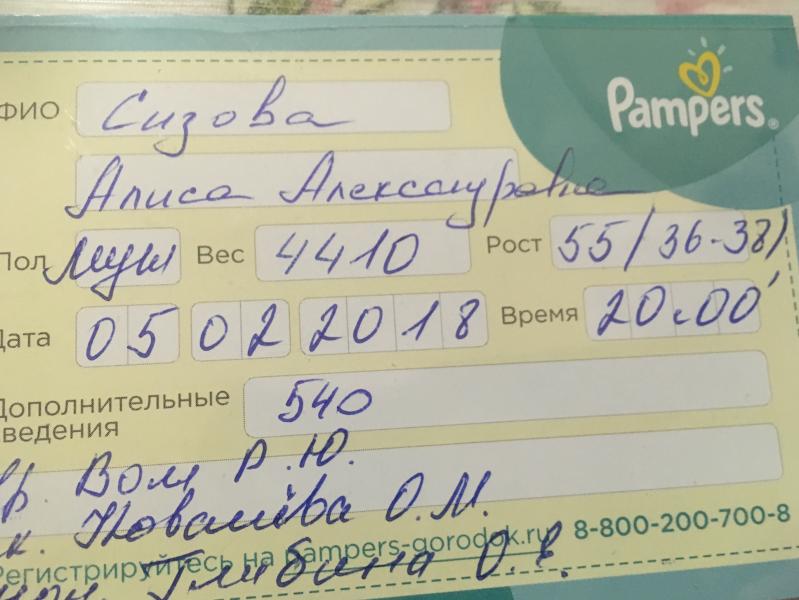 Pampers
ФИО Сизова
Алиса Александровна
Пол муж Вес 4410 Рост 55/36-38)
Дата 05 02 2018 Время 20.00'
Дополнительные 540
сведения
Вр. Вом Р.Ю.
к. Ковалёва О.М.
Регистрируйтесь на pampers-gorodok.ru 8-800-200-700-8
Глибина О.Е.